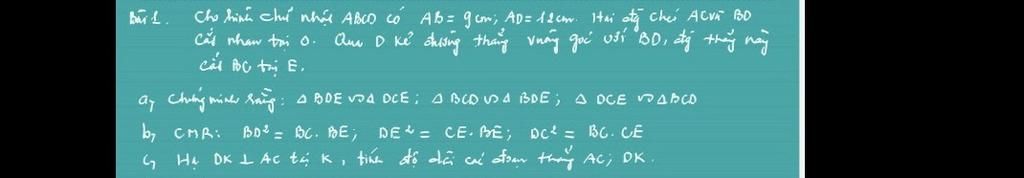 Bài 1. Cho hình chữ nhật ABCD có AB = 9cm; AD = 12cm. Hai đg chéo AC và BD
cắt nhau tại O. Qua D kẻ đường thẳng vuông góc với BD, đg thẳng này
cắt BC tại E.
a, Chứng minh rằng: Δ BDE ∽ Δ DCE; Δ BCD ∽ Δ BDE; Δ DCE ∽ Δ BCD
b, CMR: BD² = BC. BE; DE² = CE. BE; DC² = BC. CE
c, Hạ DK ⊥ AC tại K, tính độ dài các đoạn thẳng AC; DK.